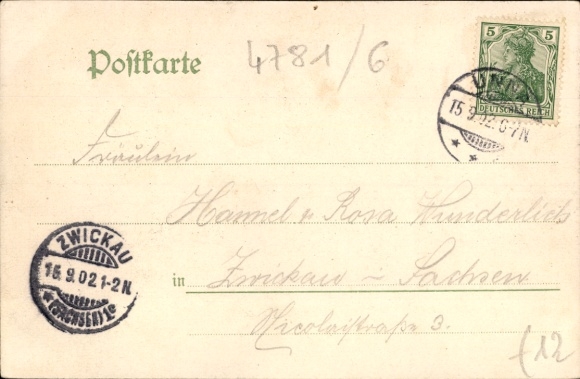 Postkarte
4781/6
5 5
DEUTSCHES REICH
15.9.02.6-7N.
Fräulein
Hannel u Rosa Wunderlich
in Zwickau - Sachsen
Nicolaistraße 3.
ZWICKAU
16.9.02.1-2N.
* (SACHSEN) 1c
(12